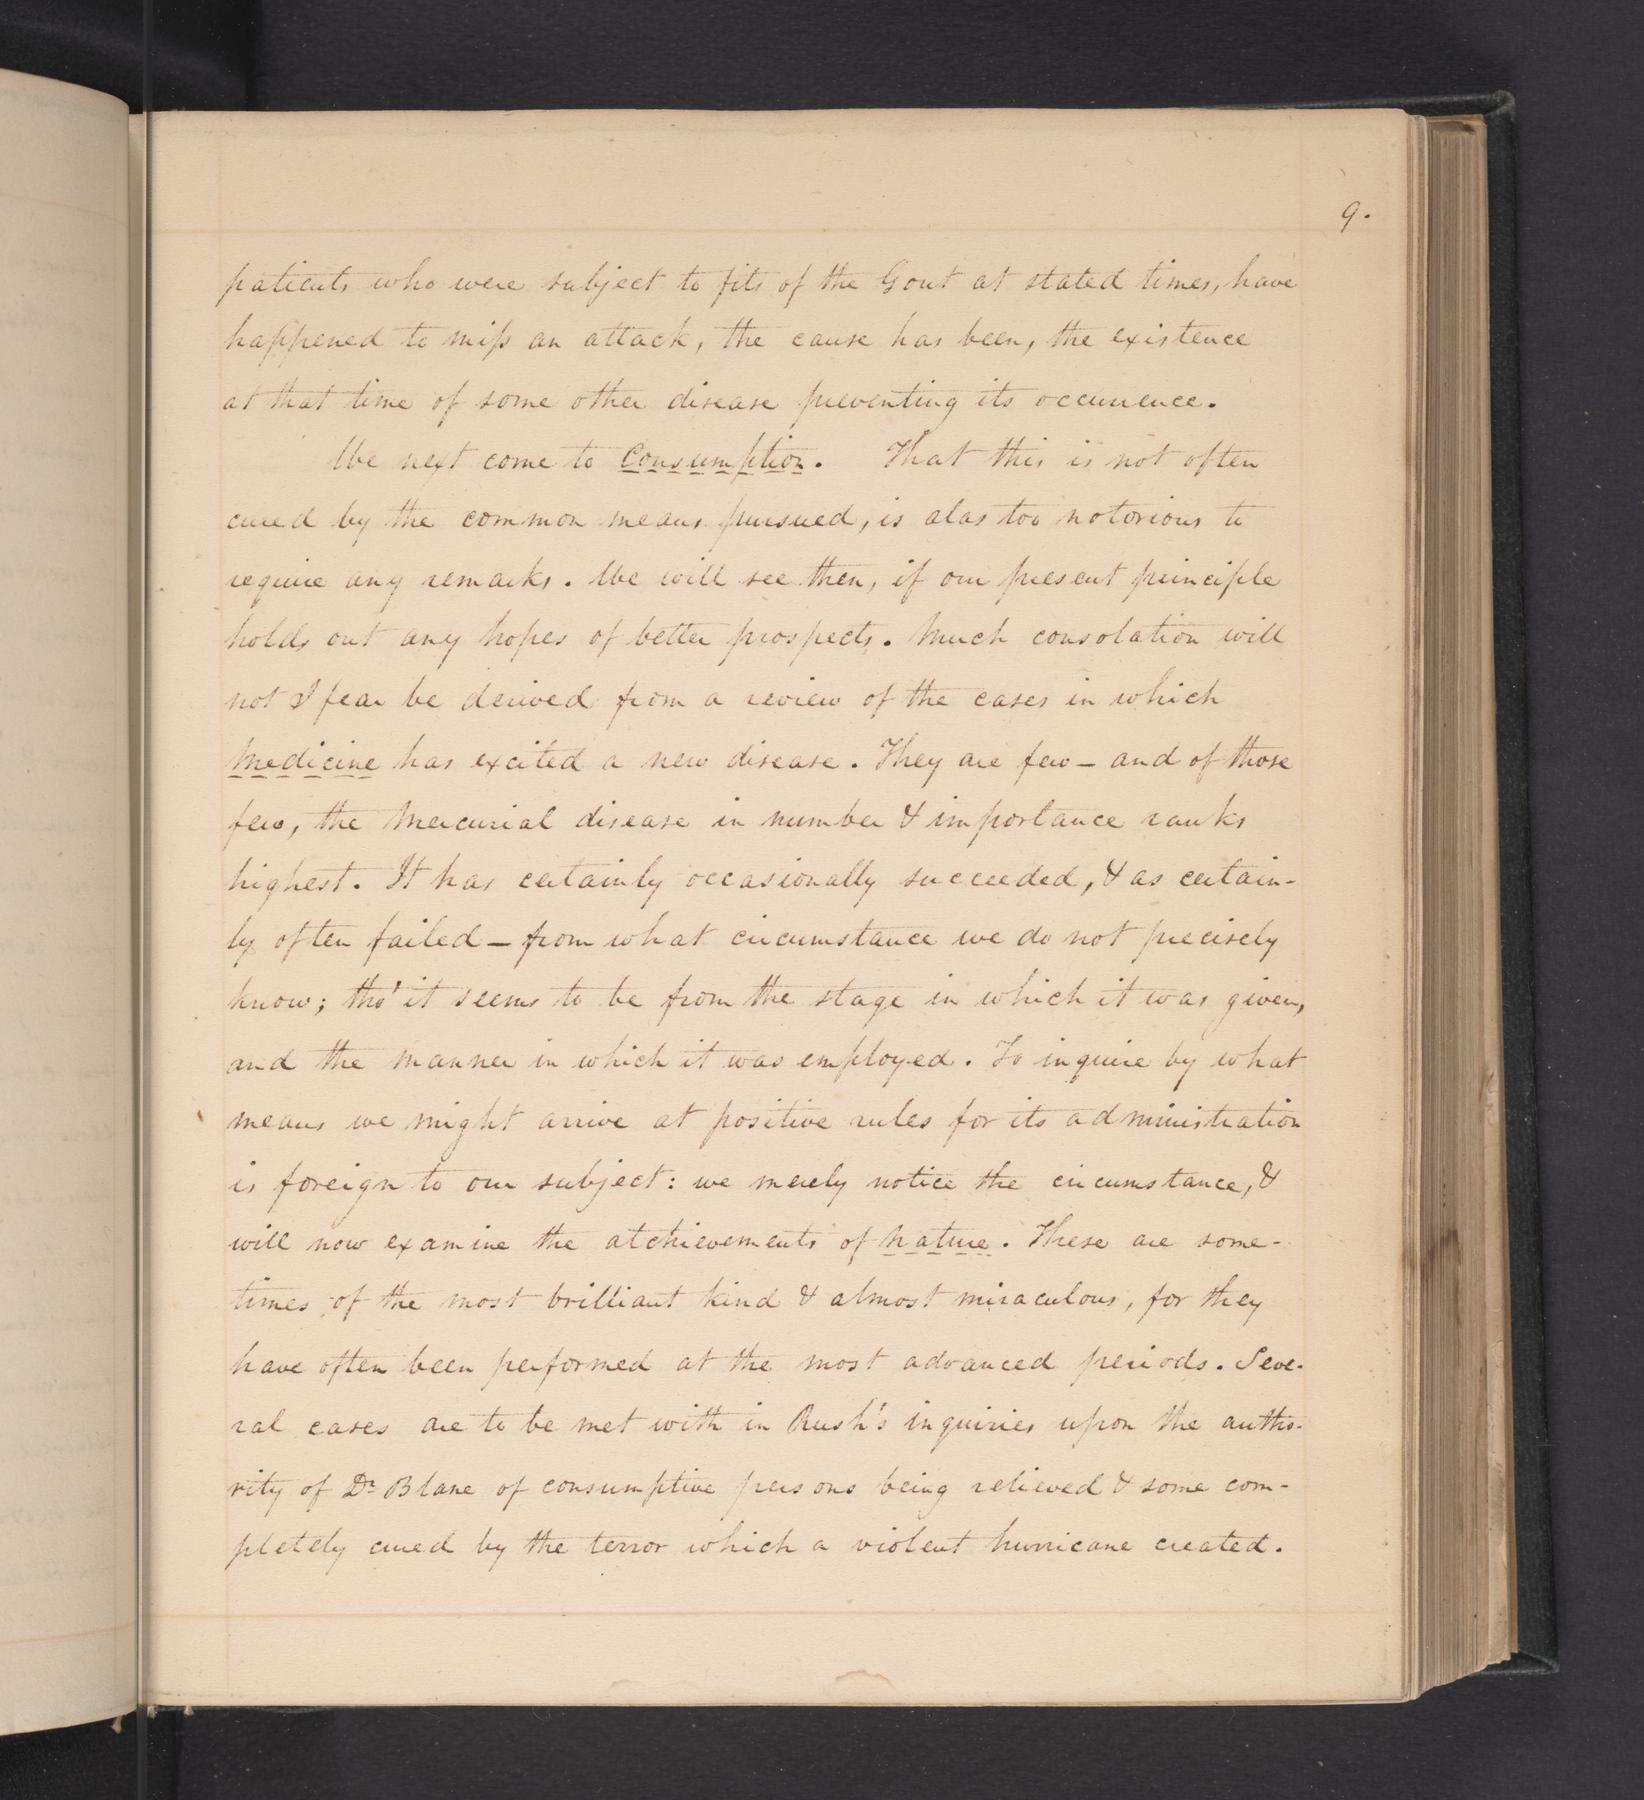 9.
patients who were subject to fits of the Gout at stated times, have
happened to miſs an attack, the cause has been, the existence
at that time of some other disease preventing its occurrence.
We next come to Consumption. That this is not often
cured by the common means pursued, is alas too notorious to
require any remarks. We will see then, if our present principle
holds out any hopes of better prospects. Much consolation will
not I fear be derived from a review of the cases in which
Medicine has excited a new disease. They are few – and of those
few, the Mercurial disease in number & importance ranks
highest. It has certainly occasionally succeeded, & as certain-
ly often failed – from what circumstance we do not precisely
know; tho' it seems to be from the stage in which it was given,
and the manner in which it was employed. To inquire by what
means we might arrive at positive rules for its administration
is foreign to our subject: we merely notice the circumstance, &
will now examine the atchievements of Nature. These are some-
times of the most brilliant kind & almost miraculous, for they
have often been performed at the most advanced periods. Seve-
ral cases are to be met with in Rush's inquiries upon the autho-
rity of Dr Blane of consumptive persons being relieved & some com-
pletely cured by the terror which a violent hurricane created.